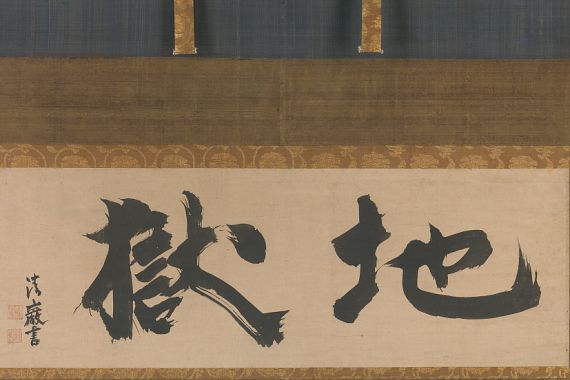 地獄
清巌書